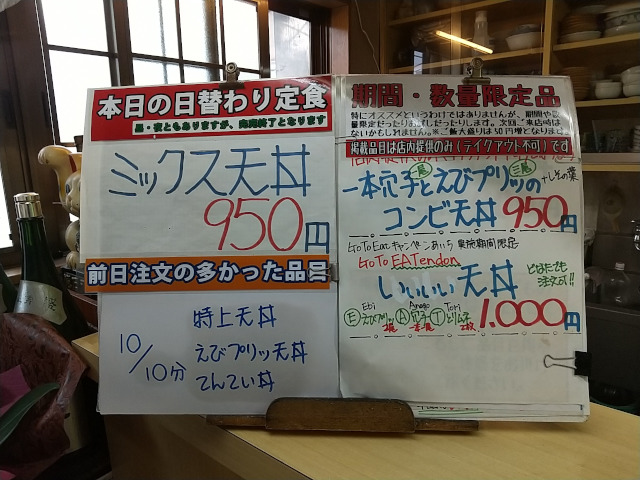 本日の日替わり定食
昼・夜ともありますが、完売終了となります
ミックス天丼
950円
前日注文の多かった品目
10/10分
特上天丼
えびプリッ天丼
てんてい丼
期間・数量限定品
特にオススメというわけではありませんが、期間や数
量限定だったりお試しだったりします。次回ご来店時は
ないかもしれません。※ご飯大盛りは50円増となります
掲載品目は店内提供のみ(テイクアウト不可)です
一本穴子とえびプリッの
二尾
+しその葉
コンビ天丼 950円
GoToEatキャンペーンあいち 実施期間限定
GoTo EATendon
いいいい天丼
とはたでも
注文可!!
Ebi Anago Tori
Ⓔえびプリッ Ⓐ穴子 Ⓣとりムネ
二尾 一本 2枚
1.000円